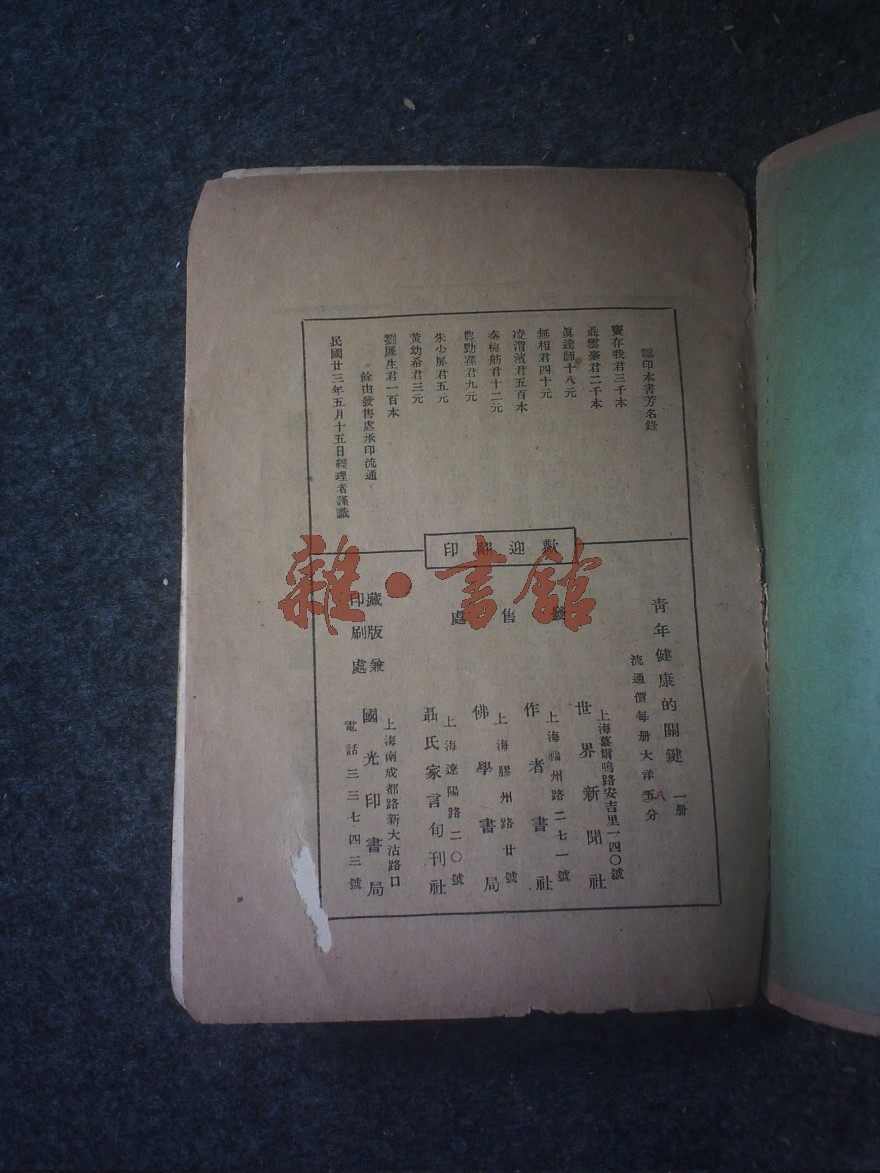 認印本書芳名錄
竇存我君三千本
聶雲臺君二千本
眞達師十八元
無相君四十元
凌渭濱君五百本
秦梅舫君十二元
農勁蓀君九元
朱少屏君五元
黃幼希君三元
劉廉生君一百本
餘由發售處承印流通
民國廿三年五月十五日經理者謹識
歡迎翻印
青年健康的關鍵 一册
流通價每册大洋五分
八
發售處
上海慕爾鳴路安吉里一四〇號
世界新聞社
上海福州路二七一號
作者書社
上海膠州路廿號
佛學書局
上海遼陽路二〇號
聶氏家言旬刊社
藏版兼印刷處
上海南成都路新大沽路口
國光印書局
電話三三七四三號
雜·書館